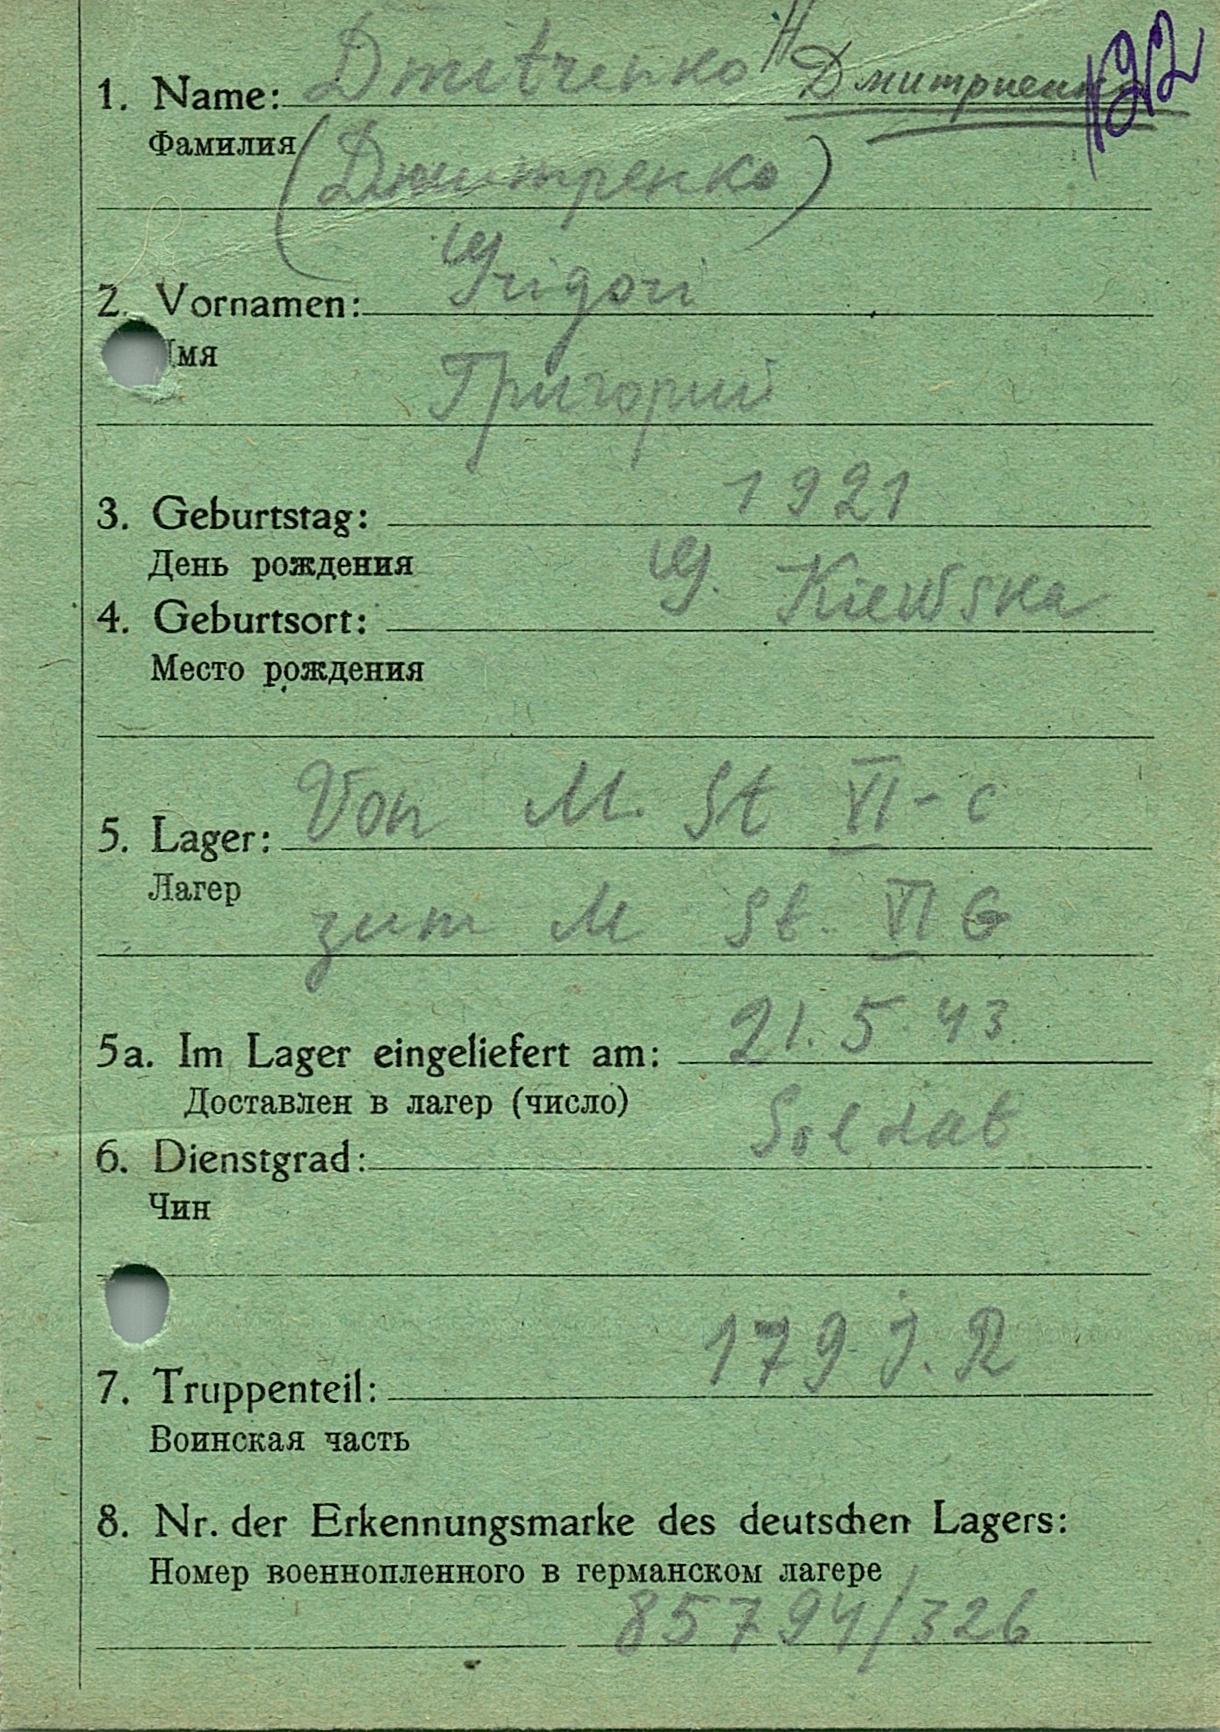 1. Name: Dmitrenko Дмитриенко 122
Фамилия (Дмитренко)
2. Vornamen: Grigori
Имя Григорий
3. Geburtstag: 1921
День рождения
4. Geburtsort: G. Kiewska
Место рождения
5. Lager: Von M. St VI-C
Лагер zum M St. VI G
5a. Im Lager eingeliefert am: 21.5 43.
Доставлен в лагер (число)
6. Dienstgrad: Soldat
Чин
7. Truppenteil: 179 J. R
Воинская часть
8. Nr. der Erkennungsmarke des deutschen Lagers:
Номер военнопленного в германском лагере
85794/326